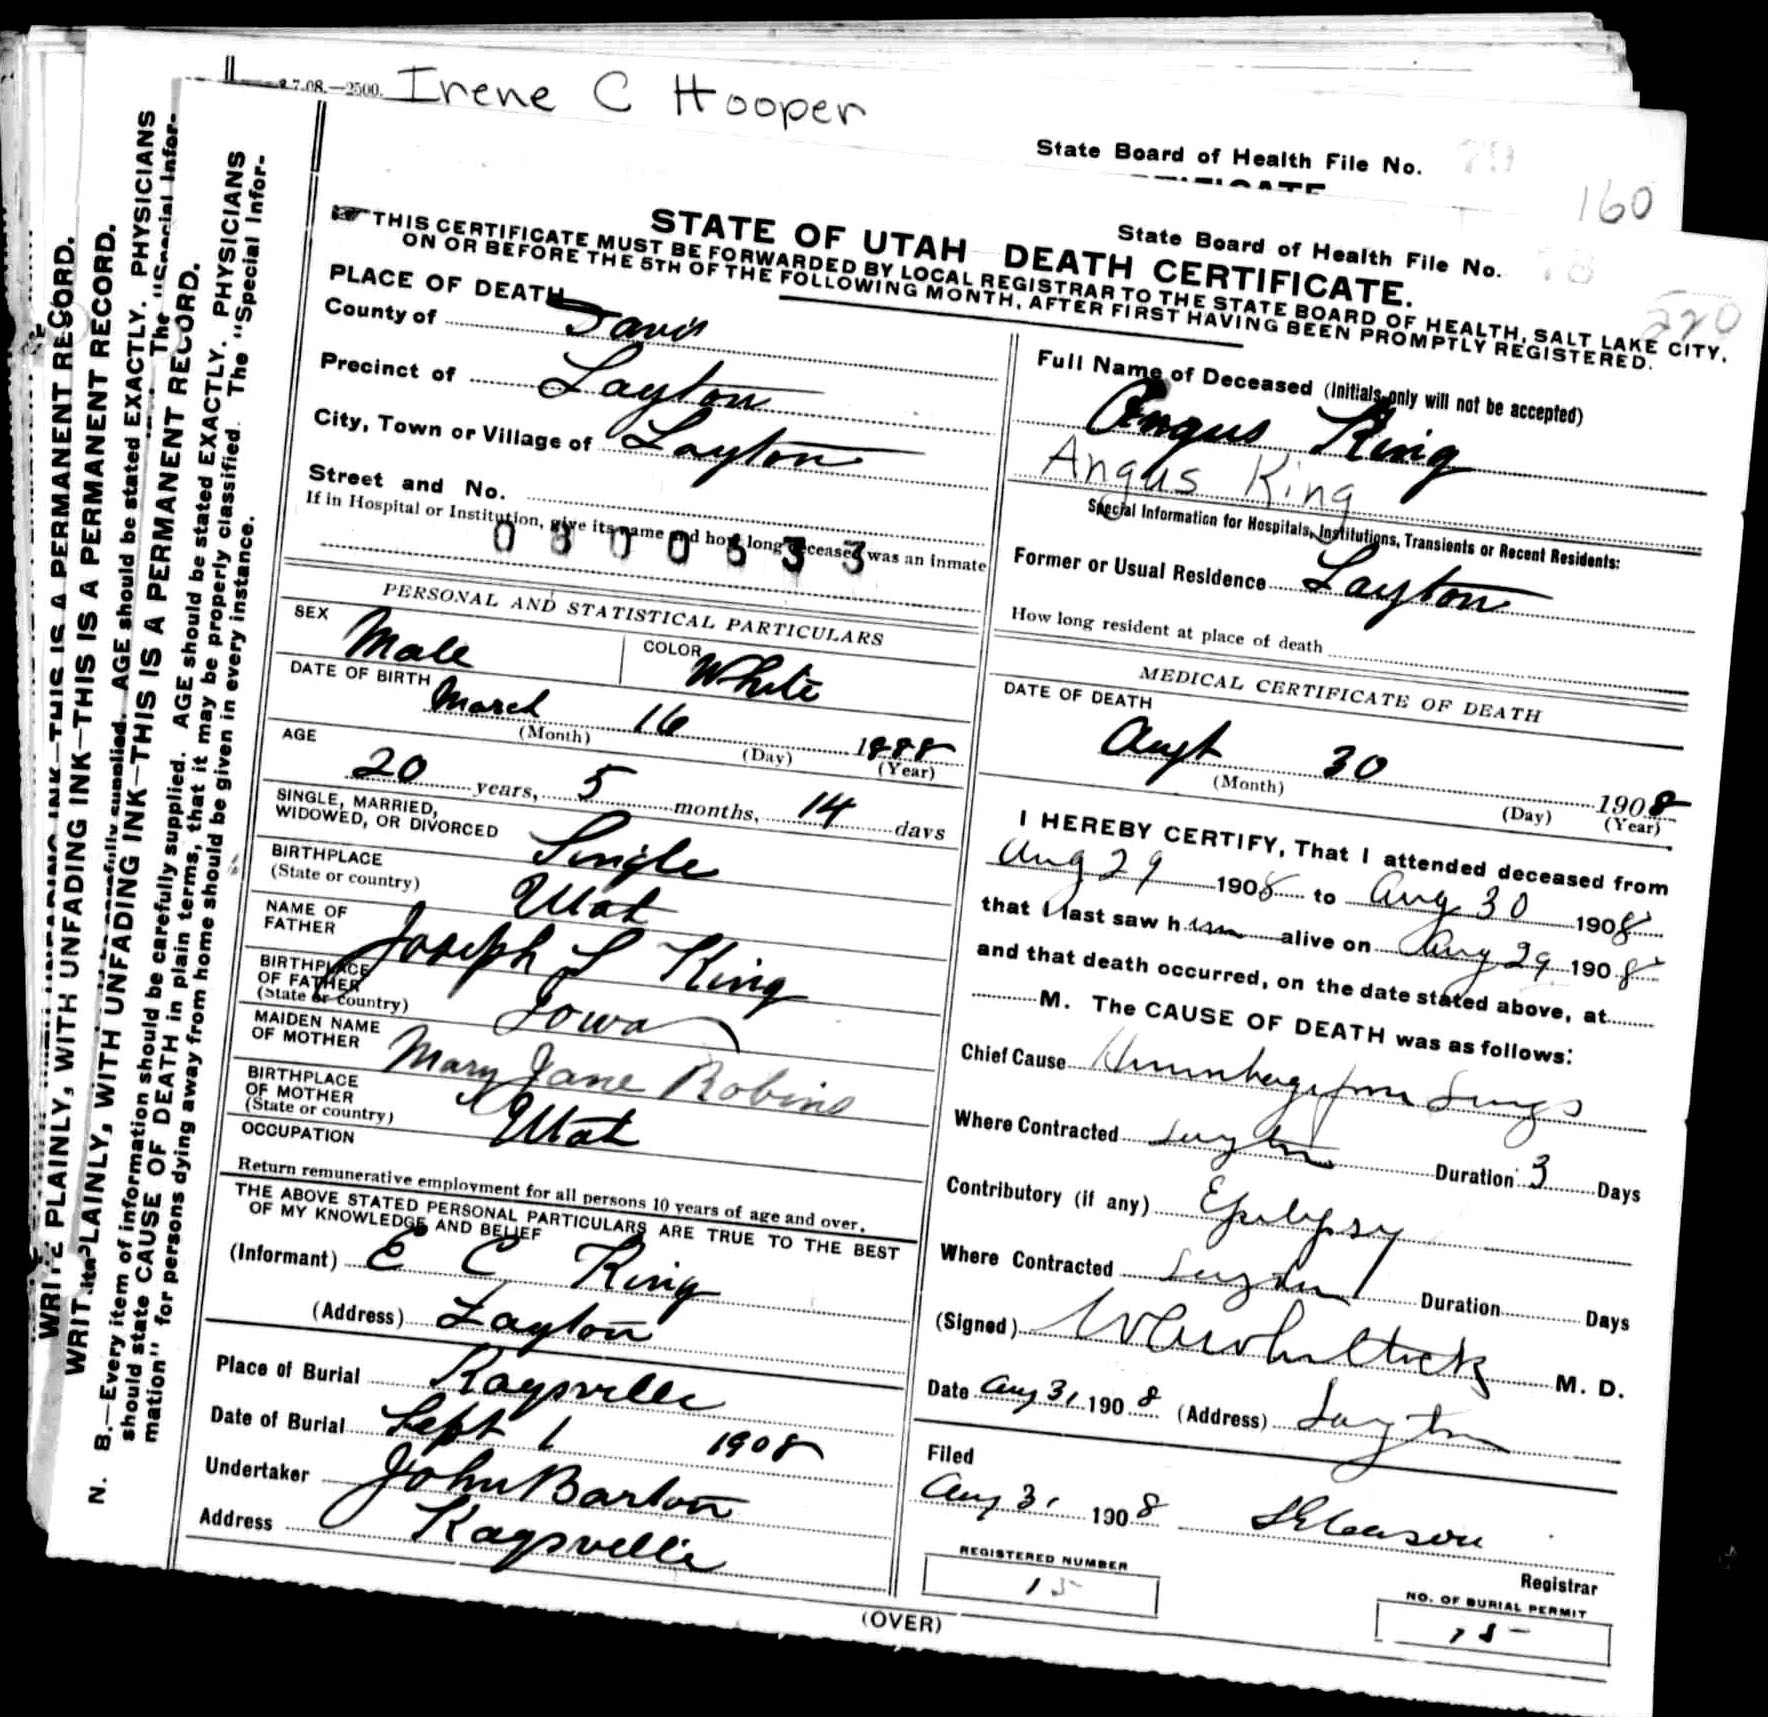 2.7.08.—2500. Irene C Hooper
State Board of Health File No.
160
State Board of Health File No. 78
220
STATE OF UTAH DEATH CERTIFICATE.
THIS CERTIFICATE MUST BE FORWARDED BY LOCAL REGISTRAR TO THE STATE BOARD OF HEALTH, SALT LAKE CITY,
ON OR BEFORE THE 5TH OF THE FOLLOWING MONTH, AFTER FIRST HAVING BEEN PROMPTLY REGISTERED.
PLACE OF DEATH
County of Davis
Precinct of Layton
City, Town or Village of Layton
Street and No.
If in Hospital or Institution, give its name and how long deceased was an inmate
PERSONAL AND STATISTICAL PARTICULARS
SEX Male COLOR White
DATE OF BIRTH March 16 1888
(Month) (Day) (Year)
AGE
20 years, 5 months, 14 days
SINGLE, MARRIED,
WIDOWED, OR DIVORCED Single
BIRTHPLACE
(State or country) Utah
NAME OF
FATHER Joseph L King
BIRTHPLACE
OF FATHER
(State or country) Iowa
MAIDEN NAME
OF MOTHER Mary Jane Robins
BIRTHPLACE
OF MOTHER
(State or country) Utah
OCCUPATION
Return remunerative employment for all persons 10 years of age and over.
THE ABOVE STATED PERSONAL PARTICULARS ARE TRUE TO THE BEST
OF MY KNOWLEDGE AND BELIEF
(Informant) E C King
(Address) Layton
Place of Burial Kaysville
Date of Burial Sept 1 1908
Undertaker John Barton
Address Kaysville
Full Name of Deceased (Initials only will not be accepted)
Angus King
Angus King
Special Information for Hospitals, Institutions, Transients or Recent Residents:
Former or Usual Residence Layton
How long resident at place of death
MEDICAL CERTIFICATE OF DEATH
DATE OF DEATH
Augt 30 1908
(Month) (Day) (Year)
I HEREBY CERTIFY, That I attended deceased from
Aug 29 1908 to Aug 30 1908
that I last saw him alive on Aug 29 1908
and that death occurred, on the date stated above, at
M. The CAUSE OF DEATH was as follows:
Chief Cause Hemorrhage from Lungs
Where Contracted Layton Duration 3 Days
Contributory (if any) Epilepsy
Where Contracted Layton Duration Days
(Signed) M. D.
Date Aug 31, 1908 (Address) Layton
Filed
Aug 31 1908
Registrar
REGISTERED NUMBER
15
NO. OF BURIAL PERMIT
15
(OVER)
WRITE PLAINLY, WITH UNFADING INK—THIS IS A PERMANENT RECORD.
N. B.—Every item of information should be carefully supplied. AGE should be stated EXACTLY. PHYSICIANS
should state CAUSE OF DEATH in plain terms, that it may be properly classified. The "Special Infor-
mation" for persons dying away from home should be given in every instance.